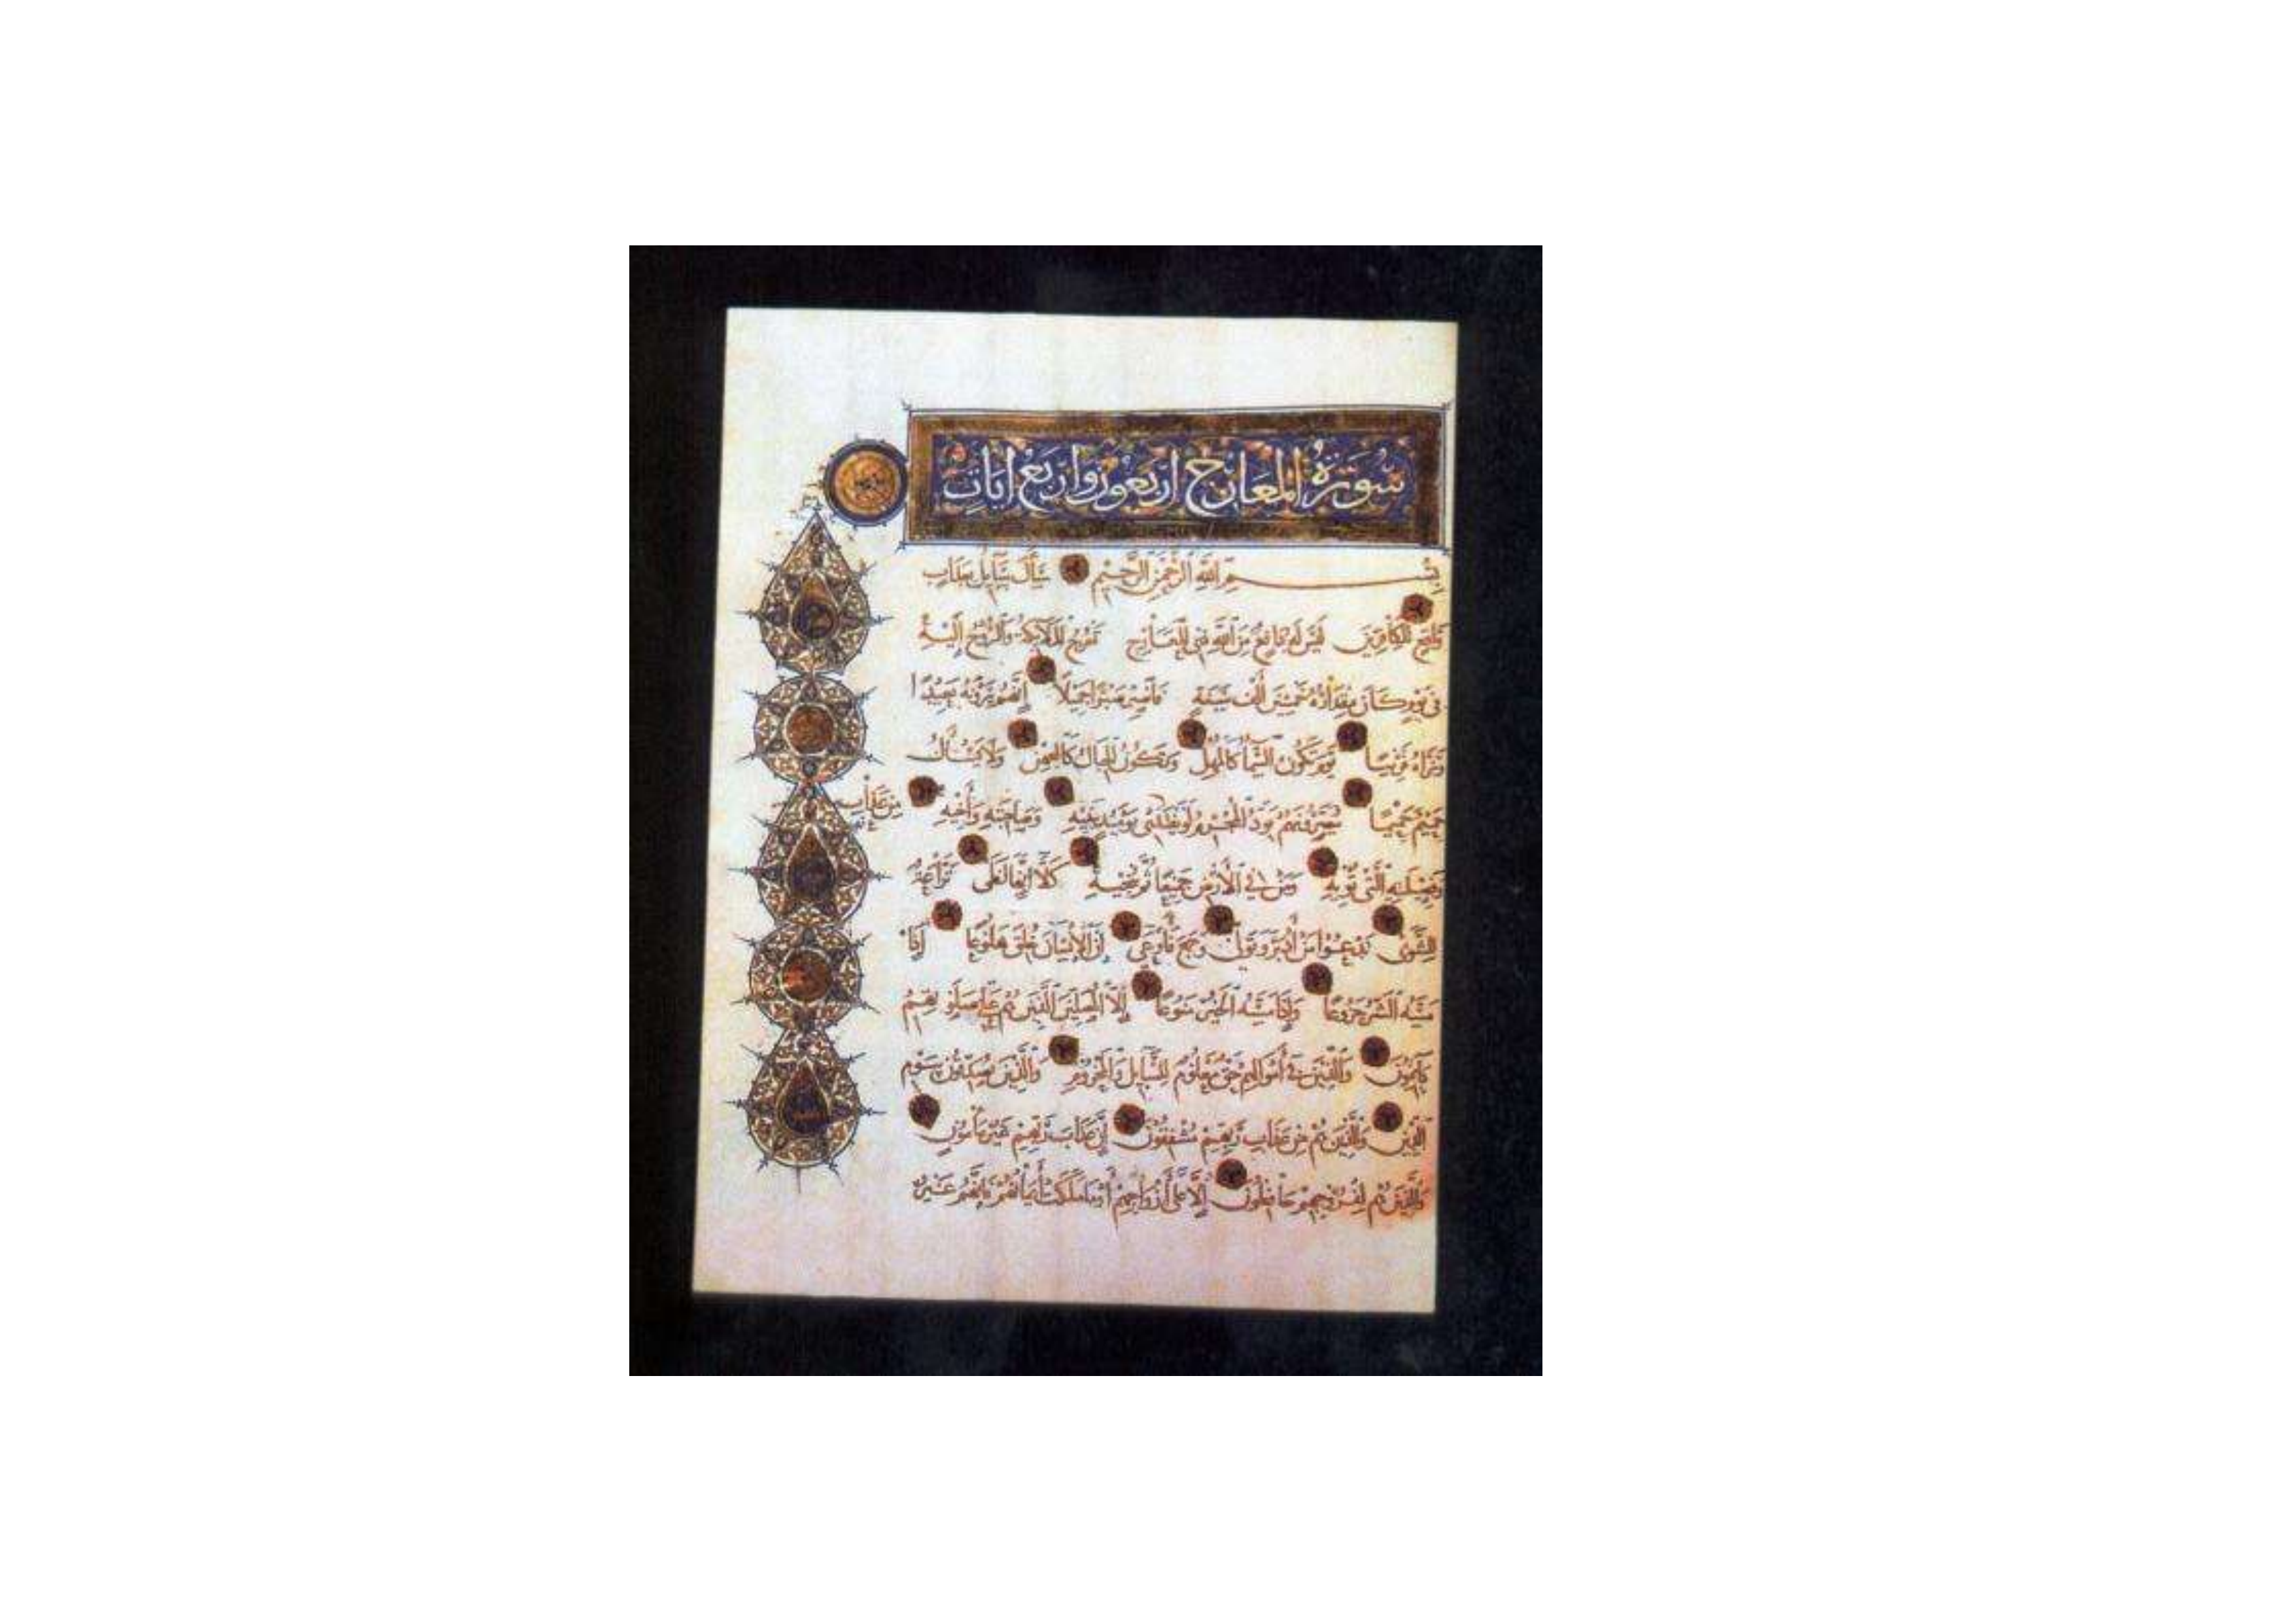 سُورَةُ المَعَارِج اربَعُون وَاربَع ايَاتٍ
بِسْمِ اللَّهِ الرَّحْمَنِ الرَّحِيمِ سَأَلَ سَايِلٌ بِعَذَابٍ
وَاقِعٍ لِلْكَافِرِينَ لَيْسَ لَهُ دَافِعٌ مِنَ اللَّهِ ذِي الْمَعَارِجِ تَعْرُجُ الْمَلَائِكَةُ وَالرُّوحُ إِلَيْهِ
فِي يَوْمٍ كَانَ مِقْدَارُهُ خَمْسِينَ أَلْفَ سَنَةٍ فَاصْبِرْ صَبْرًا جَمِيلًا إِنَّهُمْ يَرَوْنَهُ بَعِيدًا
وَنَرَاهُ قَرِيبًا يَوْمَ تَكُونُ السَّمَاءُ كَالْمُهْلِ وَتَكُونُ الْجِبَالُ كَالْعِهْنِ وَلَا يَسْأَلُ
حَمِيمٌ حَمِيمًا يُبَصَّرُونَهُمْ يَوَدُّ الْمُجْرِمُ لَوْ يَفْتَدِي يَوْمِئِذٍ بِبَنِيهِ وَصَاحِبَتِهِ وَأَخِيهِ
مِنْ عَذَابِ
وَفَصِيلَتِهِ الَّتِي تُؤْيهِ وَمَنْ فِي الْأَرْضِ جَمِيعًا ثُمَّ يُنْجِيهِ كَلَّا إِنَّهَا لَظَى نَزَّاعَةً
لِلشَّوَى تَدْعُوا مَنْ أَدْبَرَ وَتَوَلَّى وَجَمَعَ فَأَوْعَى إِنَّ الْإِنْسَانَ خُلِقَ هَلُوعًا إِذَا
مَسَّهُ الشَّرُّ جَزُوعًا وَإِذَا مَسَّهُ الْخَيْرُ مَنُوعًا إِلَّا الْمُصَلِّينَ الَّذِينَ هُمْ عَلَى صَلَوتِهِمْ
دَائِمُونَ وَالَّذِينَ فِي أَمْوَالِهِمْ حَقٌّ مَعْلُومٌ لِلسَّايِلِ وَالْمَحْرُومِ وَالَّذِينَ يُصَدِّقُونَ بِيَوْمِ
الدِّينِ وَالَّذِينَ هُمْ مِنْ عَذَابِ رَبِّهِمْ مُشْفِقُونَ إِنَّ عَذَابَ رَبِّهِمْ غَيْرُ مَأْمُونٍ
وَالَّذِينَ هُمْ لِفُرُوجِهِمْ حَافِظُونَ إِلَّا عَلَى أَزْوَاجِهِمْ أَوْ مَا مَلَكَتْ أَيْمَانُهُمْ فَإِنَّهُمْ غَيْرُ